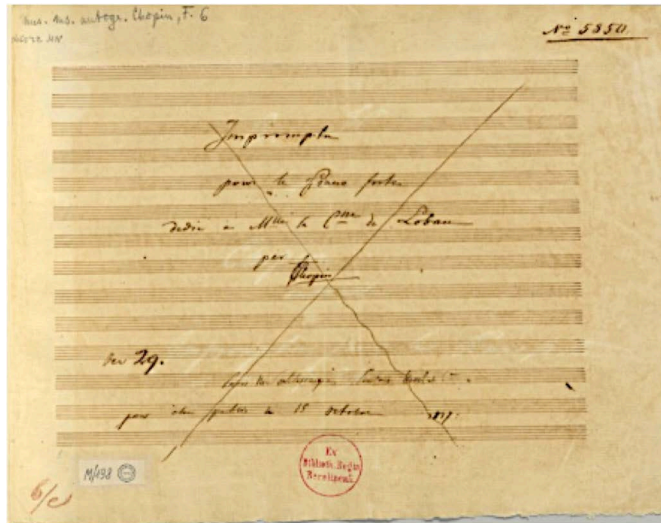 Mus. ms. autogr. Chopin, F. 6
No 5850.
Impromptu
pour le Piano forte
dedié à Mlle la Ctsse de Lobau
par
Chopin
29.
pour être publié le 15 octobre 1837.
M/198
Ex
Biblioth. Regia
Berolinensi.